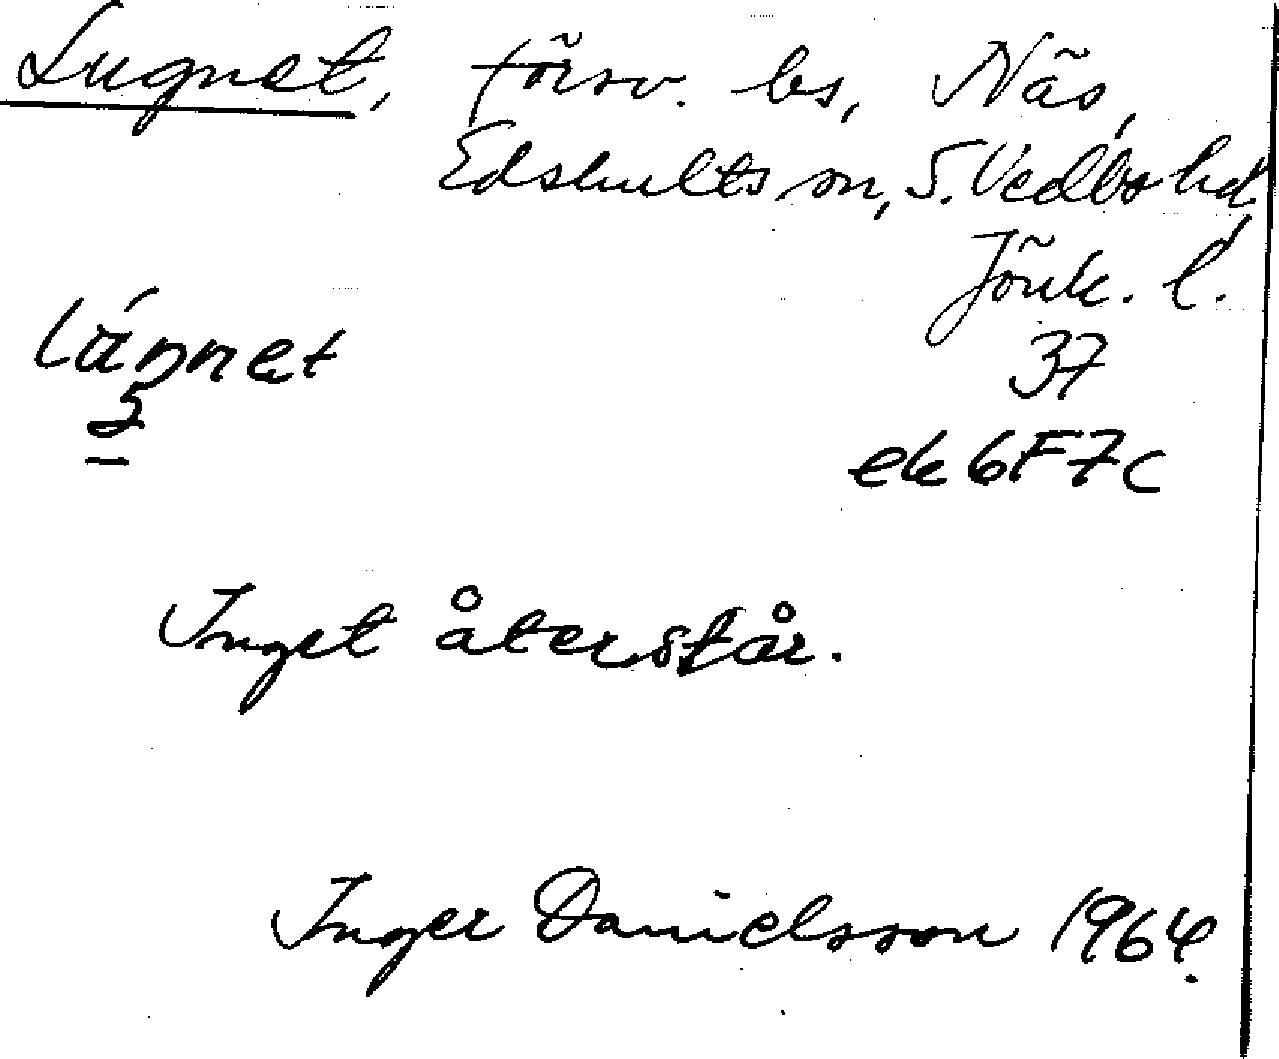 Lugnet, försv. ls, Näs,
Edshults sn, S. Vedbo hd
Jönk. l.
37
ek 6F7c
Inget återstår.
Inger Danielsson 1964.